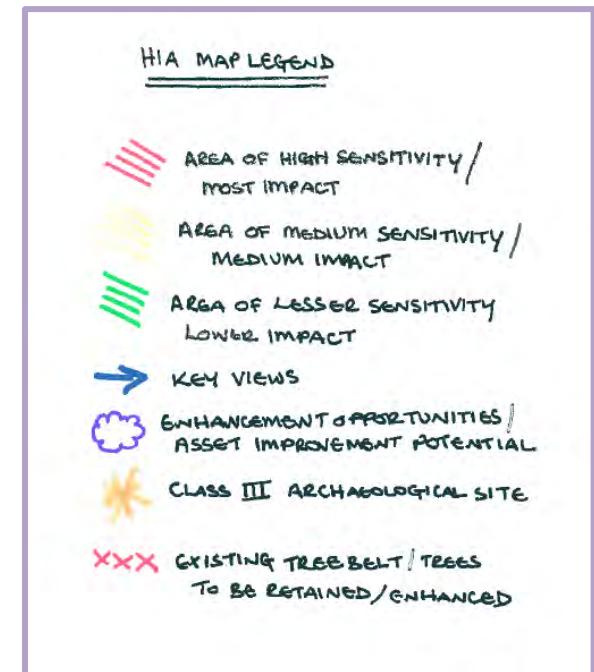 HIA MAP LEGEND
AREA OF HIGH SENSITIVITY/
MOST IMPACT
AREA OF MEDIUM SENSITIVITY/
MEDIUM IMPACT
AREA OF LESSER SENSITIVITY
LOWER IMPACT
KEY VIEWS
ENHANCEMENT OPPORTUNITIES/
ASSET IMPROVEMENT POTENTIAL
CLASS III ARCHAEOLOGICAL SITE
EXISTING TREE BELT/TREES
TO BE RETAINED/ENHANCED